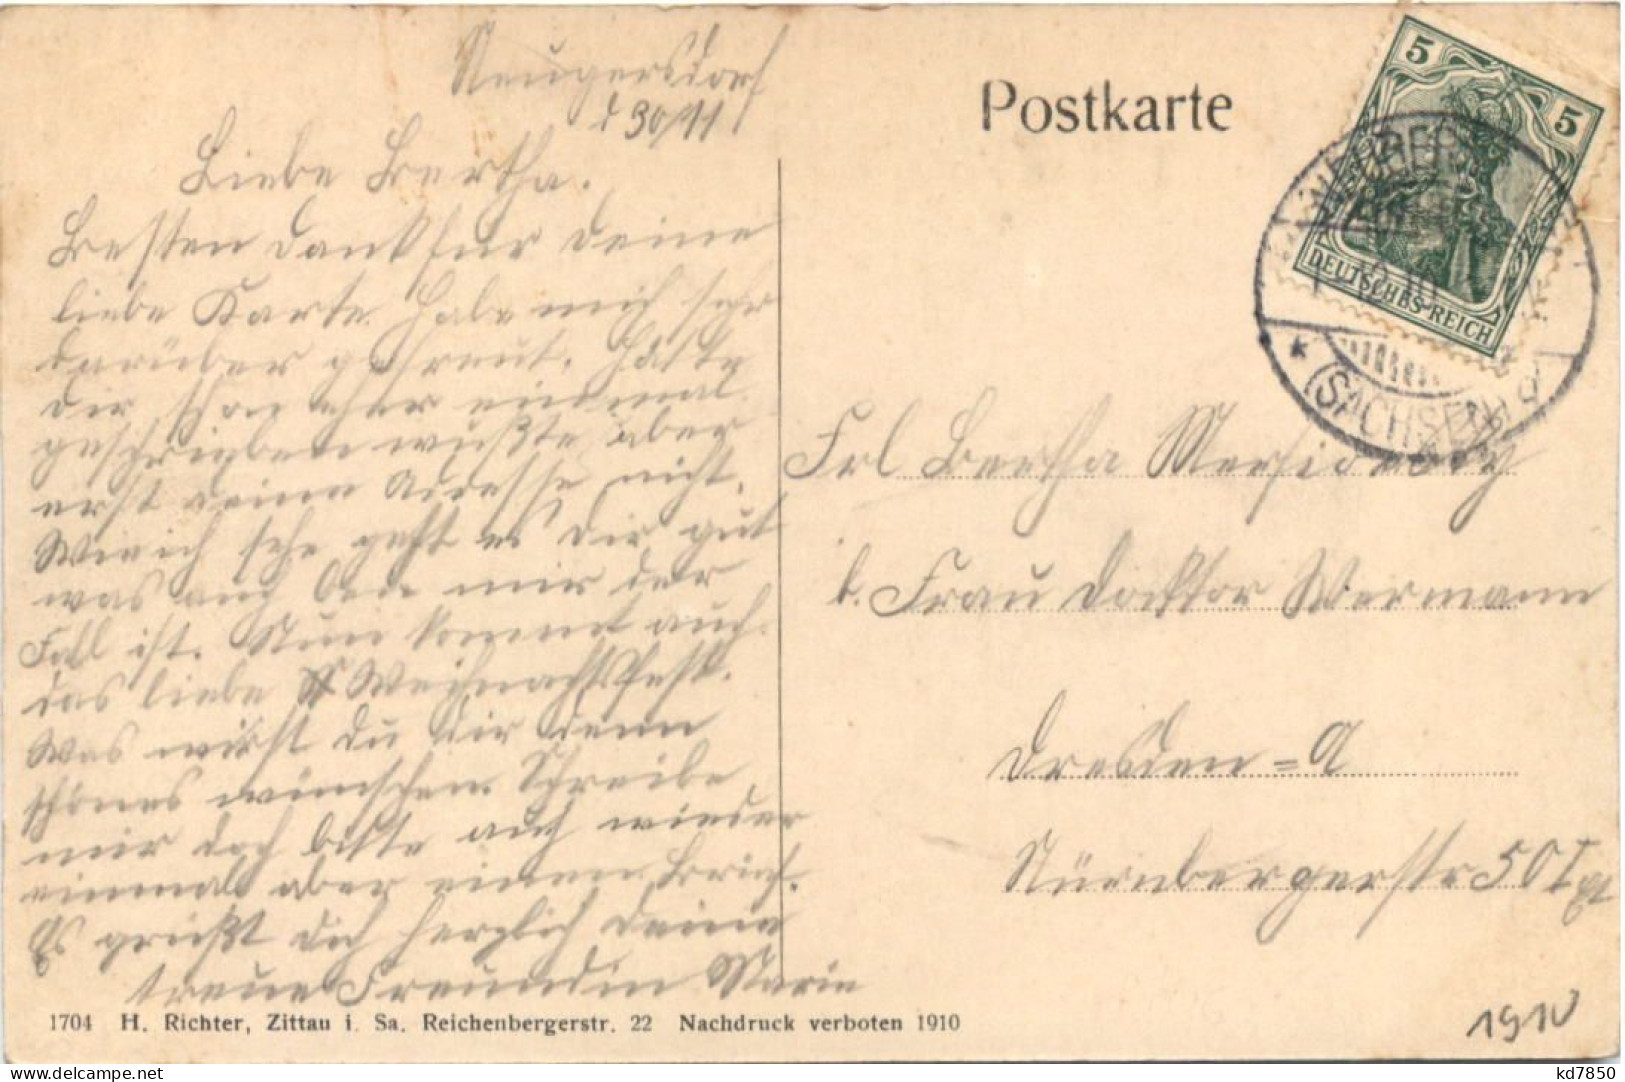 Neugersdorf
d 30/11
Liebe Bertha.
Besten Dank für deine
liebe Karte. Habe mich sehr
darüber gefreut. Hätte
dir schon eher einmal
geschrieben wußte aber
erst deine Adresse nicht.
Wie ich sehe geht es dir gut
was auch bei mir der
Fall ist. Nun kommt auch
das liebe Weihnachtsfest.
Was wirst du dir denn
schönes wünschen. Schreibe
mir doch bitte auch wieder
einmal aber einen Brief.
Es grüßt dich herzlich deine
treue Freundin Marie
1704 H. Richter, Zittau i. Sa. Reichenbergerstr. 22 Nachdruck verboten 1910
Postkarte
5
5
DEUTSCHES-REICH
(SACHSEN)
Frl Bertha
b. Frau Docktor Wermann
Dresden=A
Nürnbergerstr 50 I
1910
kd7850
delcampe.net